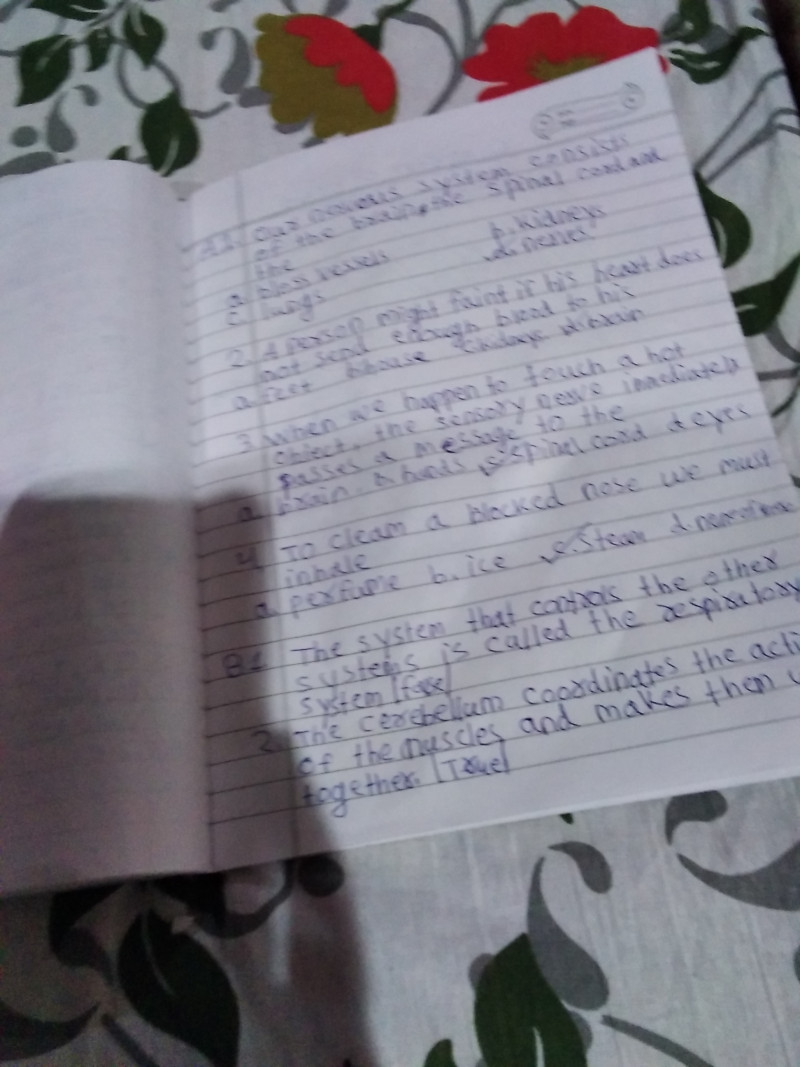 A1. Our nervous system consists
of the brain, the spinal cord and
the
a. bloos vessels b. kidneys
c. lungs d. nerves
2. A person might faint if his heart does
not send enough blood to his
a. feet b. c. kidneys d. brain
3. When we happen to touch a hot
object, the sensory nerve immediately
passes a message to the
a. brain b. hands c. spinal cord d. eyes
4. To clean a blocked nose we must
inhale
a. perfume b. ice c. Steam d.
B1. The system that controls the other
systems is called the respiratory
system [false]
2. The cerebellum coordinates the acti
of the muscles and makes them
together. [True]